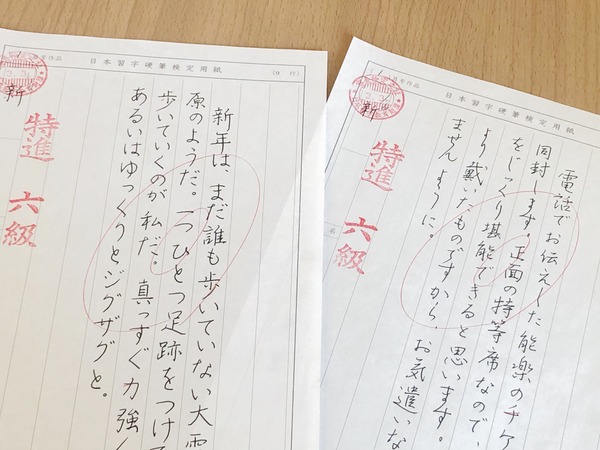 日本習字硬筆検定用紙
(9 行)
新
特進 六級
新年は、まだ誰も歩いていない大雪
原のようだ。一つひとつ足跡をつけて
歩いていくのが私だ。真っすぐ力強く
あるいはゆっくりとジグザグと。
日本習字硬筆検定用紙
新
特進 六級
電話でお伝えした能楽のチケ
同封します。正面の特等席なので、
をじっくり堪能できると思います。
より戴いたものですから、お気遣いな
ませんように。